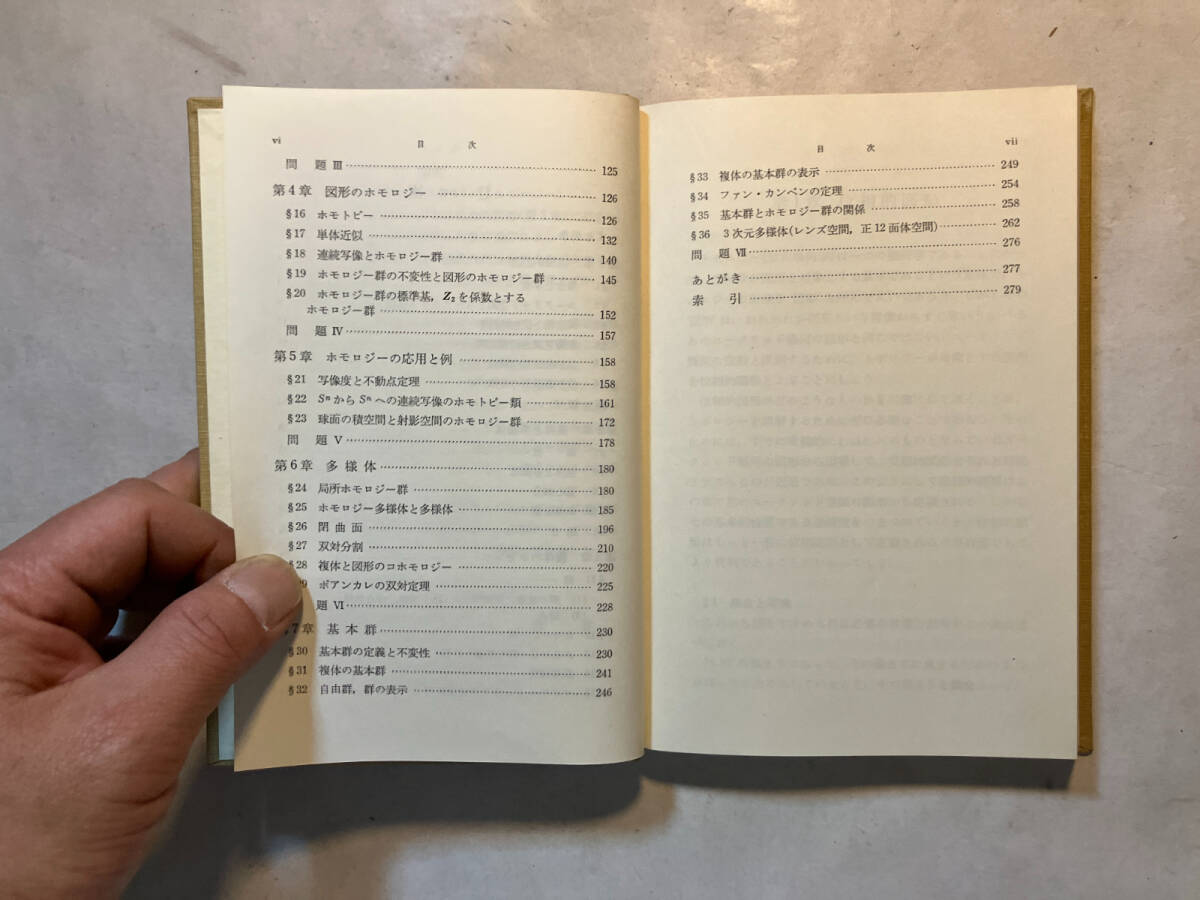 vi
目 次
問 題 Ⅲ 125
第4章 図形のホモロジー 126
§16 ホモトピー 126
§17 単体近似 132
§18 連続写像とホモロジー群 140
§19 ホモロジー群の不変性と図形のホモロジー群 145
§20 ホモロジー群の標準基,Z₂を係数とする
ホモロジー群 152
問 題 Ⅳ 157
第5章 ホモロジーの応用と例 158
§21 写像度と不動点定理 158
§22 Sⁿ から Sⁿ への連続写像のホモトピー類 161
§23 球面の積空間と射影空間のホモロジー群 172
問 題 Ⅴ 178
第6章 多 様 体 180
§24 局所ホモロジー群 180
§25 ホモロジー多様体と多様体 185
§26 閉 曲 面 196
§27 双対分割 210
§28 複体と図形のコホモロジー 220
ポアンカレの双対定理 225
題 Ⅵ 228
7章 基 本 群 230
§30 基本群の定義と不変性 230
§31 複体の基本群 241
§32 自由群,群の表示 246
目 次
vii
§33 複体の基本群の表示 249
§34 ファン・カンペンの定理 254
§35 基本群とホモロジー群の関係 258
§36 3次元多様体(レンズ空間,正12面体空間) 262
問 題 Ⅶ 276
あとがき 277
索 引 279